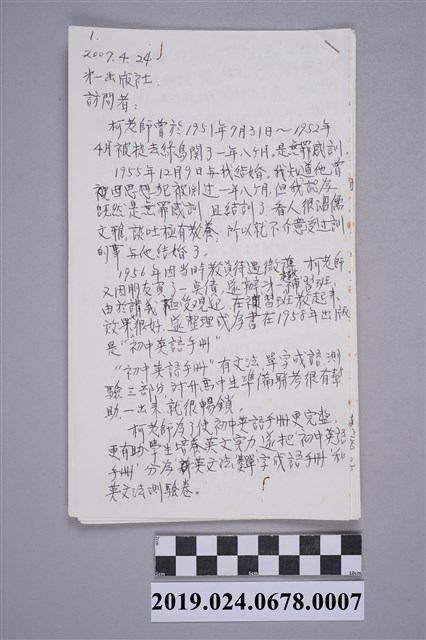 1.
2007.4.24
第一出版社
訪問者：
柯老師曾於1951年7月31日～1952年
4月被捉去綠島關了一年八个月。是無罪感訓。
1955年12月9日与我結婚。我知道他曾
被因思想犯被関过一年八个月。但我認為
既然是無罪感訓，且結訓了，看人很溫儒
文雅，談吐極有教養，所以就不介意受过訓
的事与他結婚了。
1956年因当時教員待遇微薄，柯老師
又因朋友負了一筆債，遂辦了補習班。
由於講義 在補習班教起来
效果很好，遂整理成為書在1958年出版
是"初中英語手册"
"初中英語手册"有文法，單字成語，測
驗三部分，对升高中生準備聯考很有幫
助一出来，就很暢銷。
柯老師為了使初中英語手册更完整，
更有助學生培養英文实力，遂把"初中英語
手册"分為英文法，單字成語手册和
英文法測驗卷。
5cm
10cm
2019.024.0678.0007